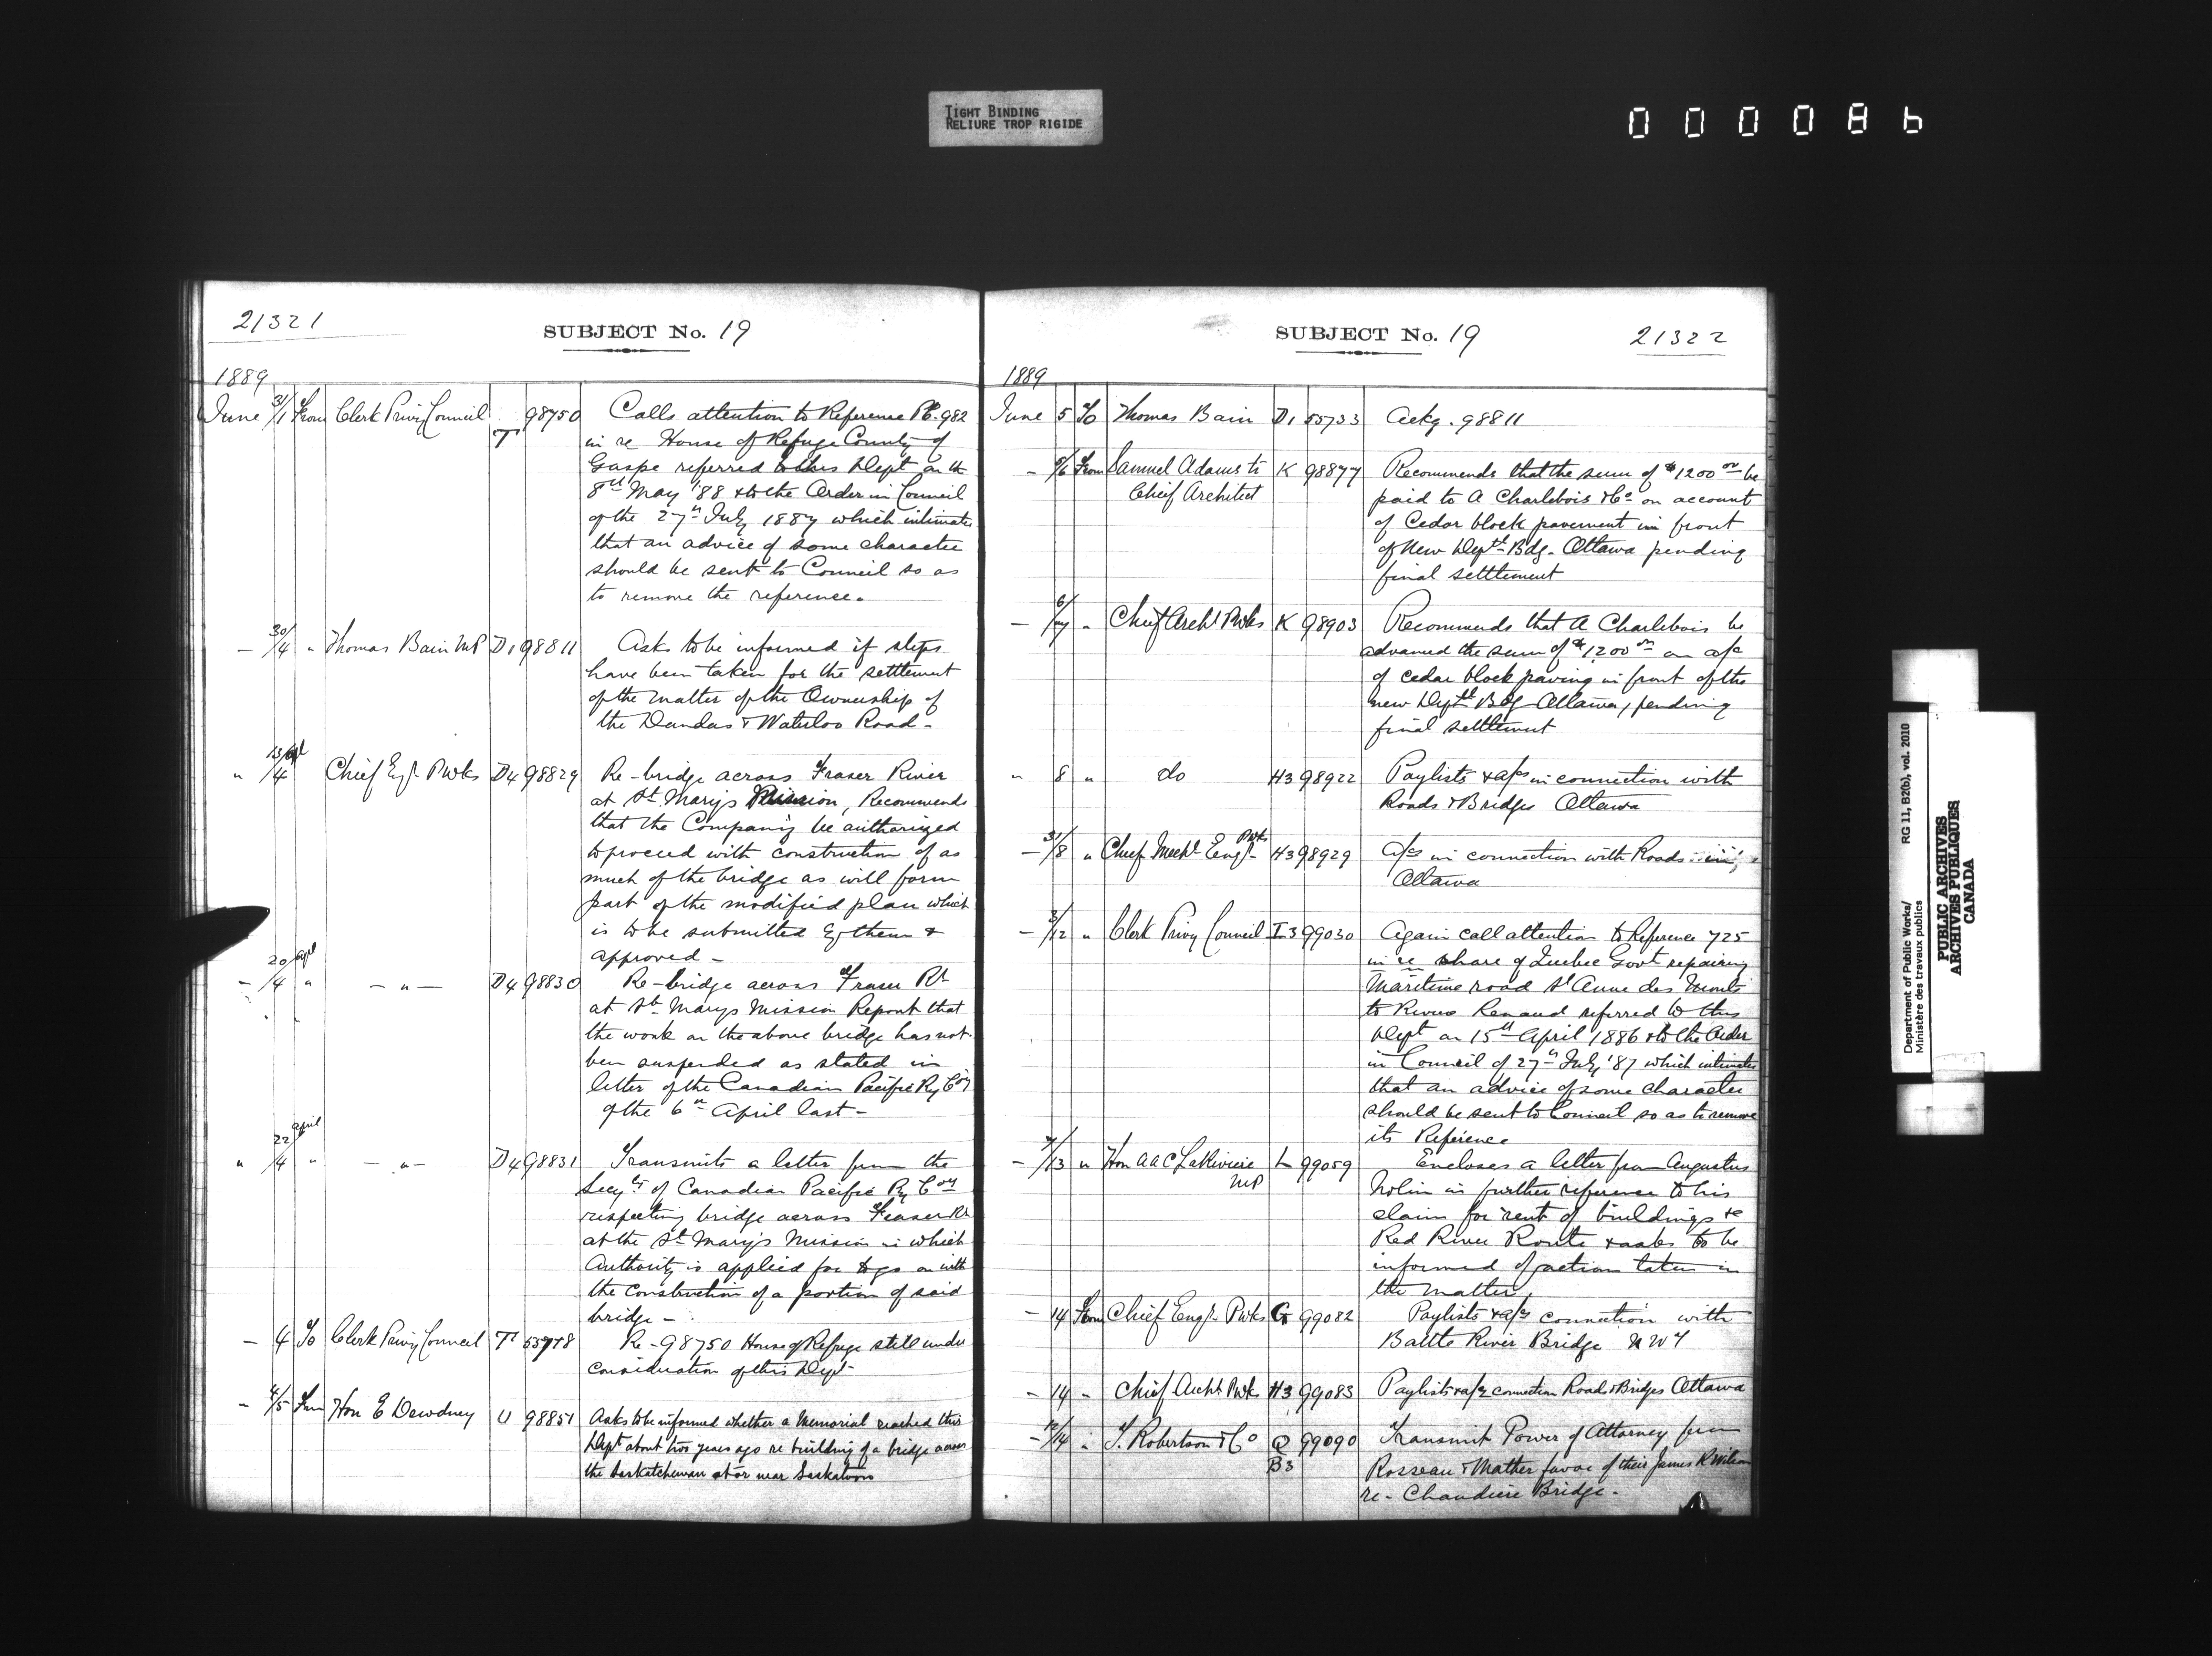 TIGHT BINDING
RELIURE TROP RIGIDE
000086
21321
SUBJECT No. 19
1889
June 31/1 From Clerk Privy Council T 98750 Calls attention to Reference PC. 982
in re House of Refuge County of
Gaspe referred to this Dept on the
8th May '88 & to the Order in Council
of the 27th July 1887 which intimates
that an advice of some character
should be sent to Council so as
to remove the reference.
— 30/4 " Thomas Bain MP D1 98811 Asks to be informed if steps
have been taken for the settlement
of the matter of the Ownership of
the Dundas & Waterloo Road —
" 13/4 apl Chief Engr PWks D4 98829 Re- bridge across Fraser River
at St. Mary's Mission, Recommends
that the Company be authorized
to proceed with construction of as
much of the bridge as will form
part of the modified plan which
is to be submitted by them &
approved —
— 20/4 apl " — " — D4 98830 Re- bridge across Fraser Rr
at St. Marys Mission Report that
the work on the above bridge has not
been suspended as stated in
letter of the Canadian Pacific Ry Coy
of the 6th April last —
" 22/4 april " — " — D4 98831 Transmits a letter from the
Secy of Canadian Pacific Ry Coy
respecting bridge across Fraser Rr
at the St Mary's Mission in which
Authority is applied for to go on with
the construction of a portion of said
bridge —
— 4 To Clerk Privy Council T1 Re- 98750 House of Refuge still under
consideration of this Dept
— 4/5 From Hon E Dewdney U 98851 Asks to be informed whether a Memorial reached this
Dept about two years ago re building of a bridge across
the Saskatchewan at or near Saskatoon
SUBJECT No. 19
21322
1889
June 5 To Thomas Bain D1 55733 Ackg. 98811
— 5/6 From Samuel Adams to K 98877 Recommends that the sum of $1200 00 be
Chief Architect paid to A Charlebois & Co on account
of Cedar block pavement in front
of New Deptl Bdg. Ottawa pending
final settlement
— 6/7 " Chief Archt PWks K 98903 Recommends that A Charlebois be
advanced the sum of $1200 00 on a/c
of cedar block paving in front of the
new Deptl Bdg Ottawa, pending
final settlement
" 8 " do H3 98922 Paylists & a/cs in connection with
Roads & Bridges Ottawa
— 31/8 " Chief Mechl Engr PWks H3 98929 A/cs in connection with Roads
Ottawa
— 3/12 " Clerk Privy Council I3 99030 Again call attention to Reference 725
in re share of Quebec Govt repairing
Maritime road St Anne des Monts
to River Renaud referred to this
Dept on 15th April 1886 & to the Order
in Council of 27th July '87 which intimates
that an advice of some character
should be sent to Council so as to remove
its Reference
— 7/13 " Hon A A C LaRiviere L 99059 Encloses a letter from Augustus
MP Nolin in further reference to his
claim for rent of buildings &c
Red River Route & asks to be
informed of action taken in
the matter,
— 14 From Chief Engr PWks G 99082 Paylists & a/cs connection with
Battle River Bridge N W T
— 14 " Chief Archt PWks H3 99083 Paylists & a/cs connection Roads & Bridges Ottawa
— 12/14 " T. Robertson & Co Q 99090 Transmit Power of Attorney from
B3 Rosseau & Mather favor of their James R Wilson
re- Chaudiere Bridge.
Department of Public Works/ RG 11, B2(b), vol. 2010
Ministère des travaux publics
PUBLIC ARCHIVES
ARCHIVES PUBLIQUES
CANADA